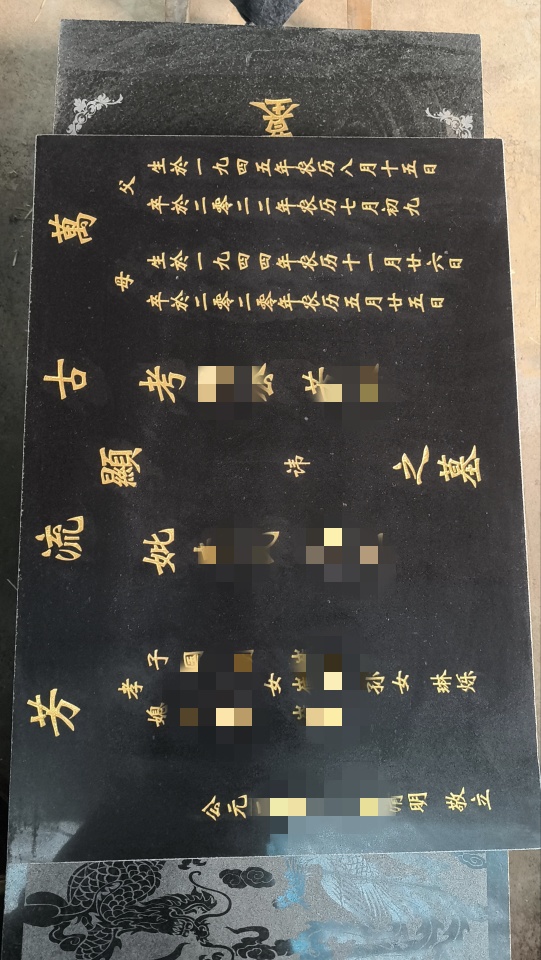 萬古流芳
父
生於一九四五年农历八月十五日
卒於二零二二年农历七月初九
母
生於一九四四年农历十一月廿六日
卒於二零二零年农历五月廿五日
考 公
顯 讳 之墓
妣
子
孝 女 孙女 琳烁
媳
公元 明 敬立